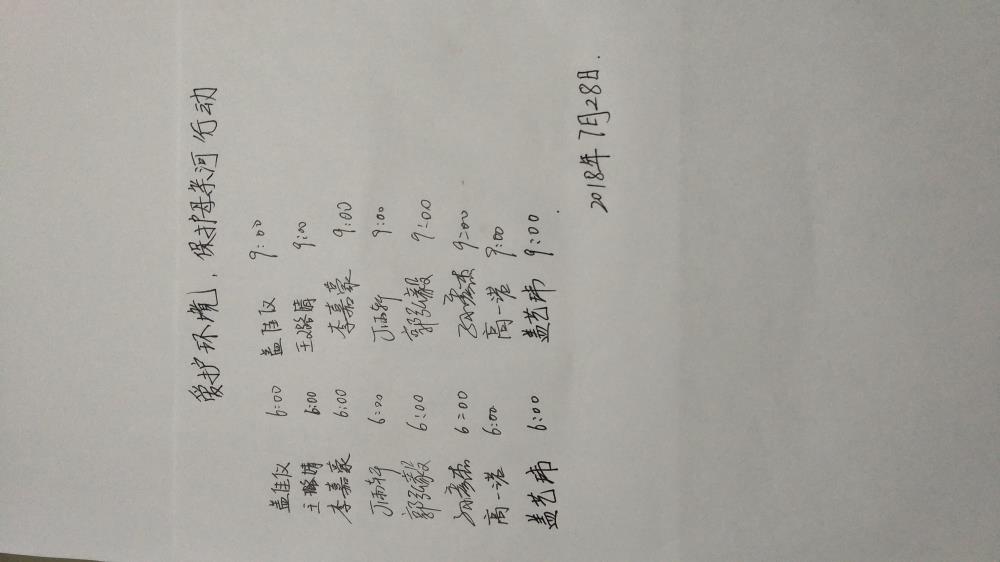 爱护环境,保护母亲河行动
盖佳仪 6:00 盖佳仪 9:00
王璐晴 6:00 王璐晴 9:00
李嘉豪 6:00 李嘉豪 9:00
6:00 9:00
郭弘毅 6:00 郭弘毅 9:00
6:00 9:00
高一诺 6:00 高一诺 9:00
盖艺玮 6:00 盖艺玮 9:00
2018年7月28日.